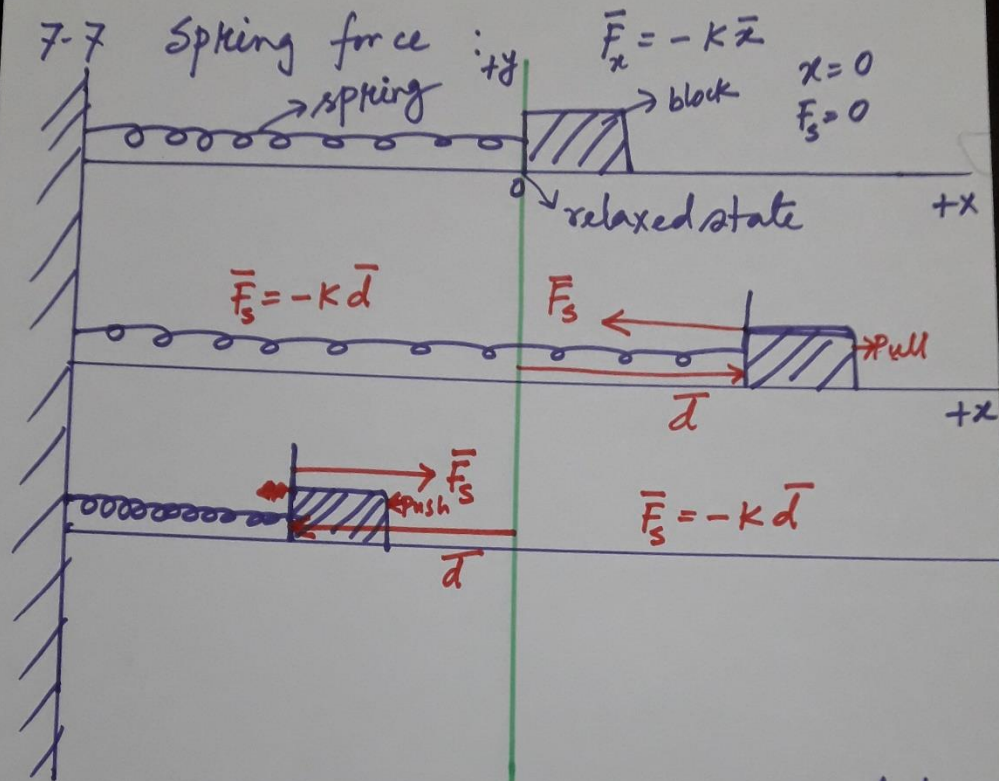 7-7 Spring force : F̅x = -Kx̅
+y
x=0
spring
block
Fs=0
0
relaxed state
+x
F̅s = -Kd̅
F̅s
Pull
d̅
+x
F̅s
Push
F̅s = -Kd̅
d̅